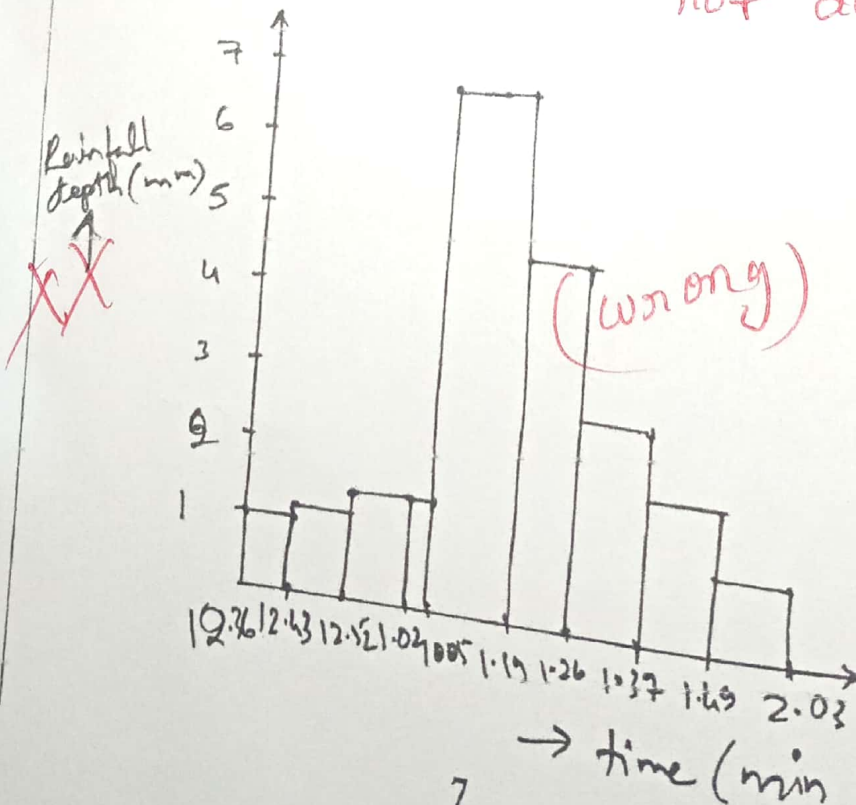 not
7
6
Rainfall
depth (mm)
5
4
(wrong)
3
2
1
12.36 12.43 12.52 1.02 1.05 1.19 1.26 1.37 1.49 2.03
→ time (min
7